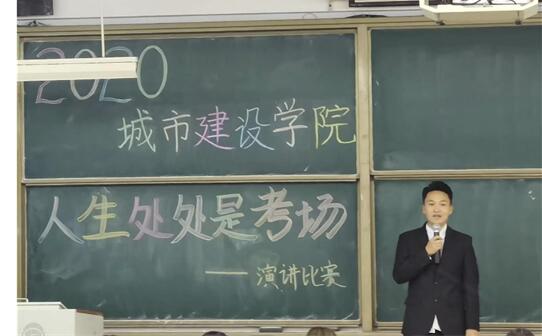 2020
城市建设学院
人生处处是考场
——演讲比赛